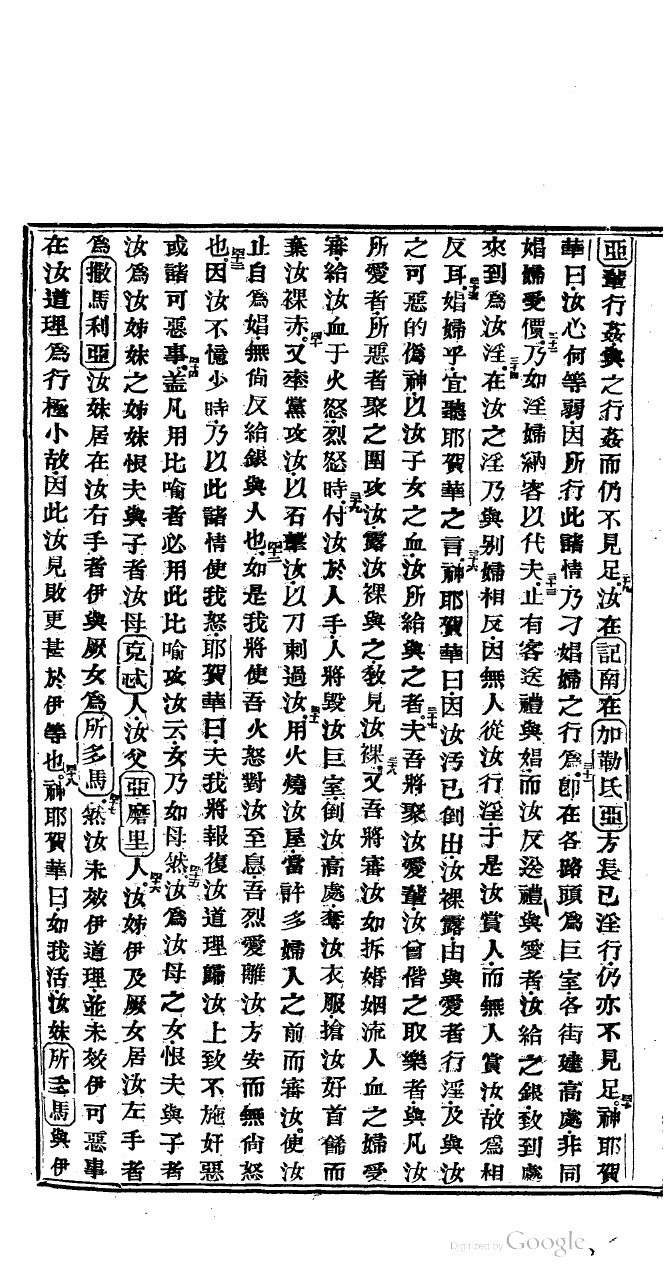 亞輩行姦與之行姦而仍不見足二九汝在記南在加勒氏亞方長已淫行仍亦不見足三十神耶賀
華曰汝心何等弱因所行此諸情乃刁娼婦之行爲三十一卽在各路頭爲巨室各街建高處非同
娼婦愛價三十二乃如淫婦納客以代夫三十三止有客送禮與娼而汝反送禮與愛者汝給之銀致到處
來到爲汝淫三十四在汝之淫乃與别婦相反因無人從汝行淫于是汝賞人而無人賞汝故爲相
反耳三十五娼婦乎宜聽耶賀華之言三十六神耶賀華曰因汝汚已倒出汝裸露由與愛者行淫及與汝
之可惡的僞神以汝子女之血汝所給與之者三十七夫吾將聚汝愛輩汝曾偕之取樂者與凡汝
所愛者所惡者聚之圍攻汝露汝裸與之敎見汝裸三十八又吾將審汝如拆婚姻流人血之婦受
審給汝血于火怒烈怒時三十九付汝於人手人將毀汝巨室倒汝高處奪汝衣服搶汝好首餙而
棄汝裸赤四十又率黨攻汝以石擊汝以刀刺過汝四十一用火燒汝屋當許多婦人之前而審汝使汝
止自爲娼無尙反給銀與人也四十二如是我將使吾火怒對汝至息吾烈愛離汝方安而無尙怒
也四十三因汝不憶少時乃以此諸情使我怒耶賀華曰夫我將報復汝道理歸汝上致不施奸惡
或諸可惡事四十四盖凡用比喻者必用此比喻攻汝云女乃如母然四十五汝爲汝母之女恨夫與子者
汝爲汝姊妹之姊妹恨夫與子者汝母克忒人汝父亞磨里人四十六汝姊伊及厥女居汝左手者
爲撒馬利亞汝妹居在汝右手者伊與厥女爲所多馬四十七然汝未效伊道理並未效伊可惡事
在汝道理爲行極小故因此汝見敗更甚於伊等也四十八神耶賀華曰如我活汝妹所多馬與伊
Digitized by Google